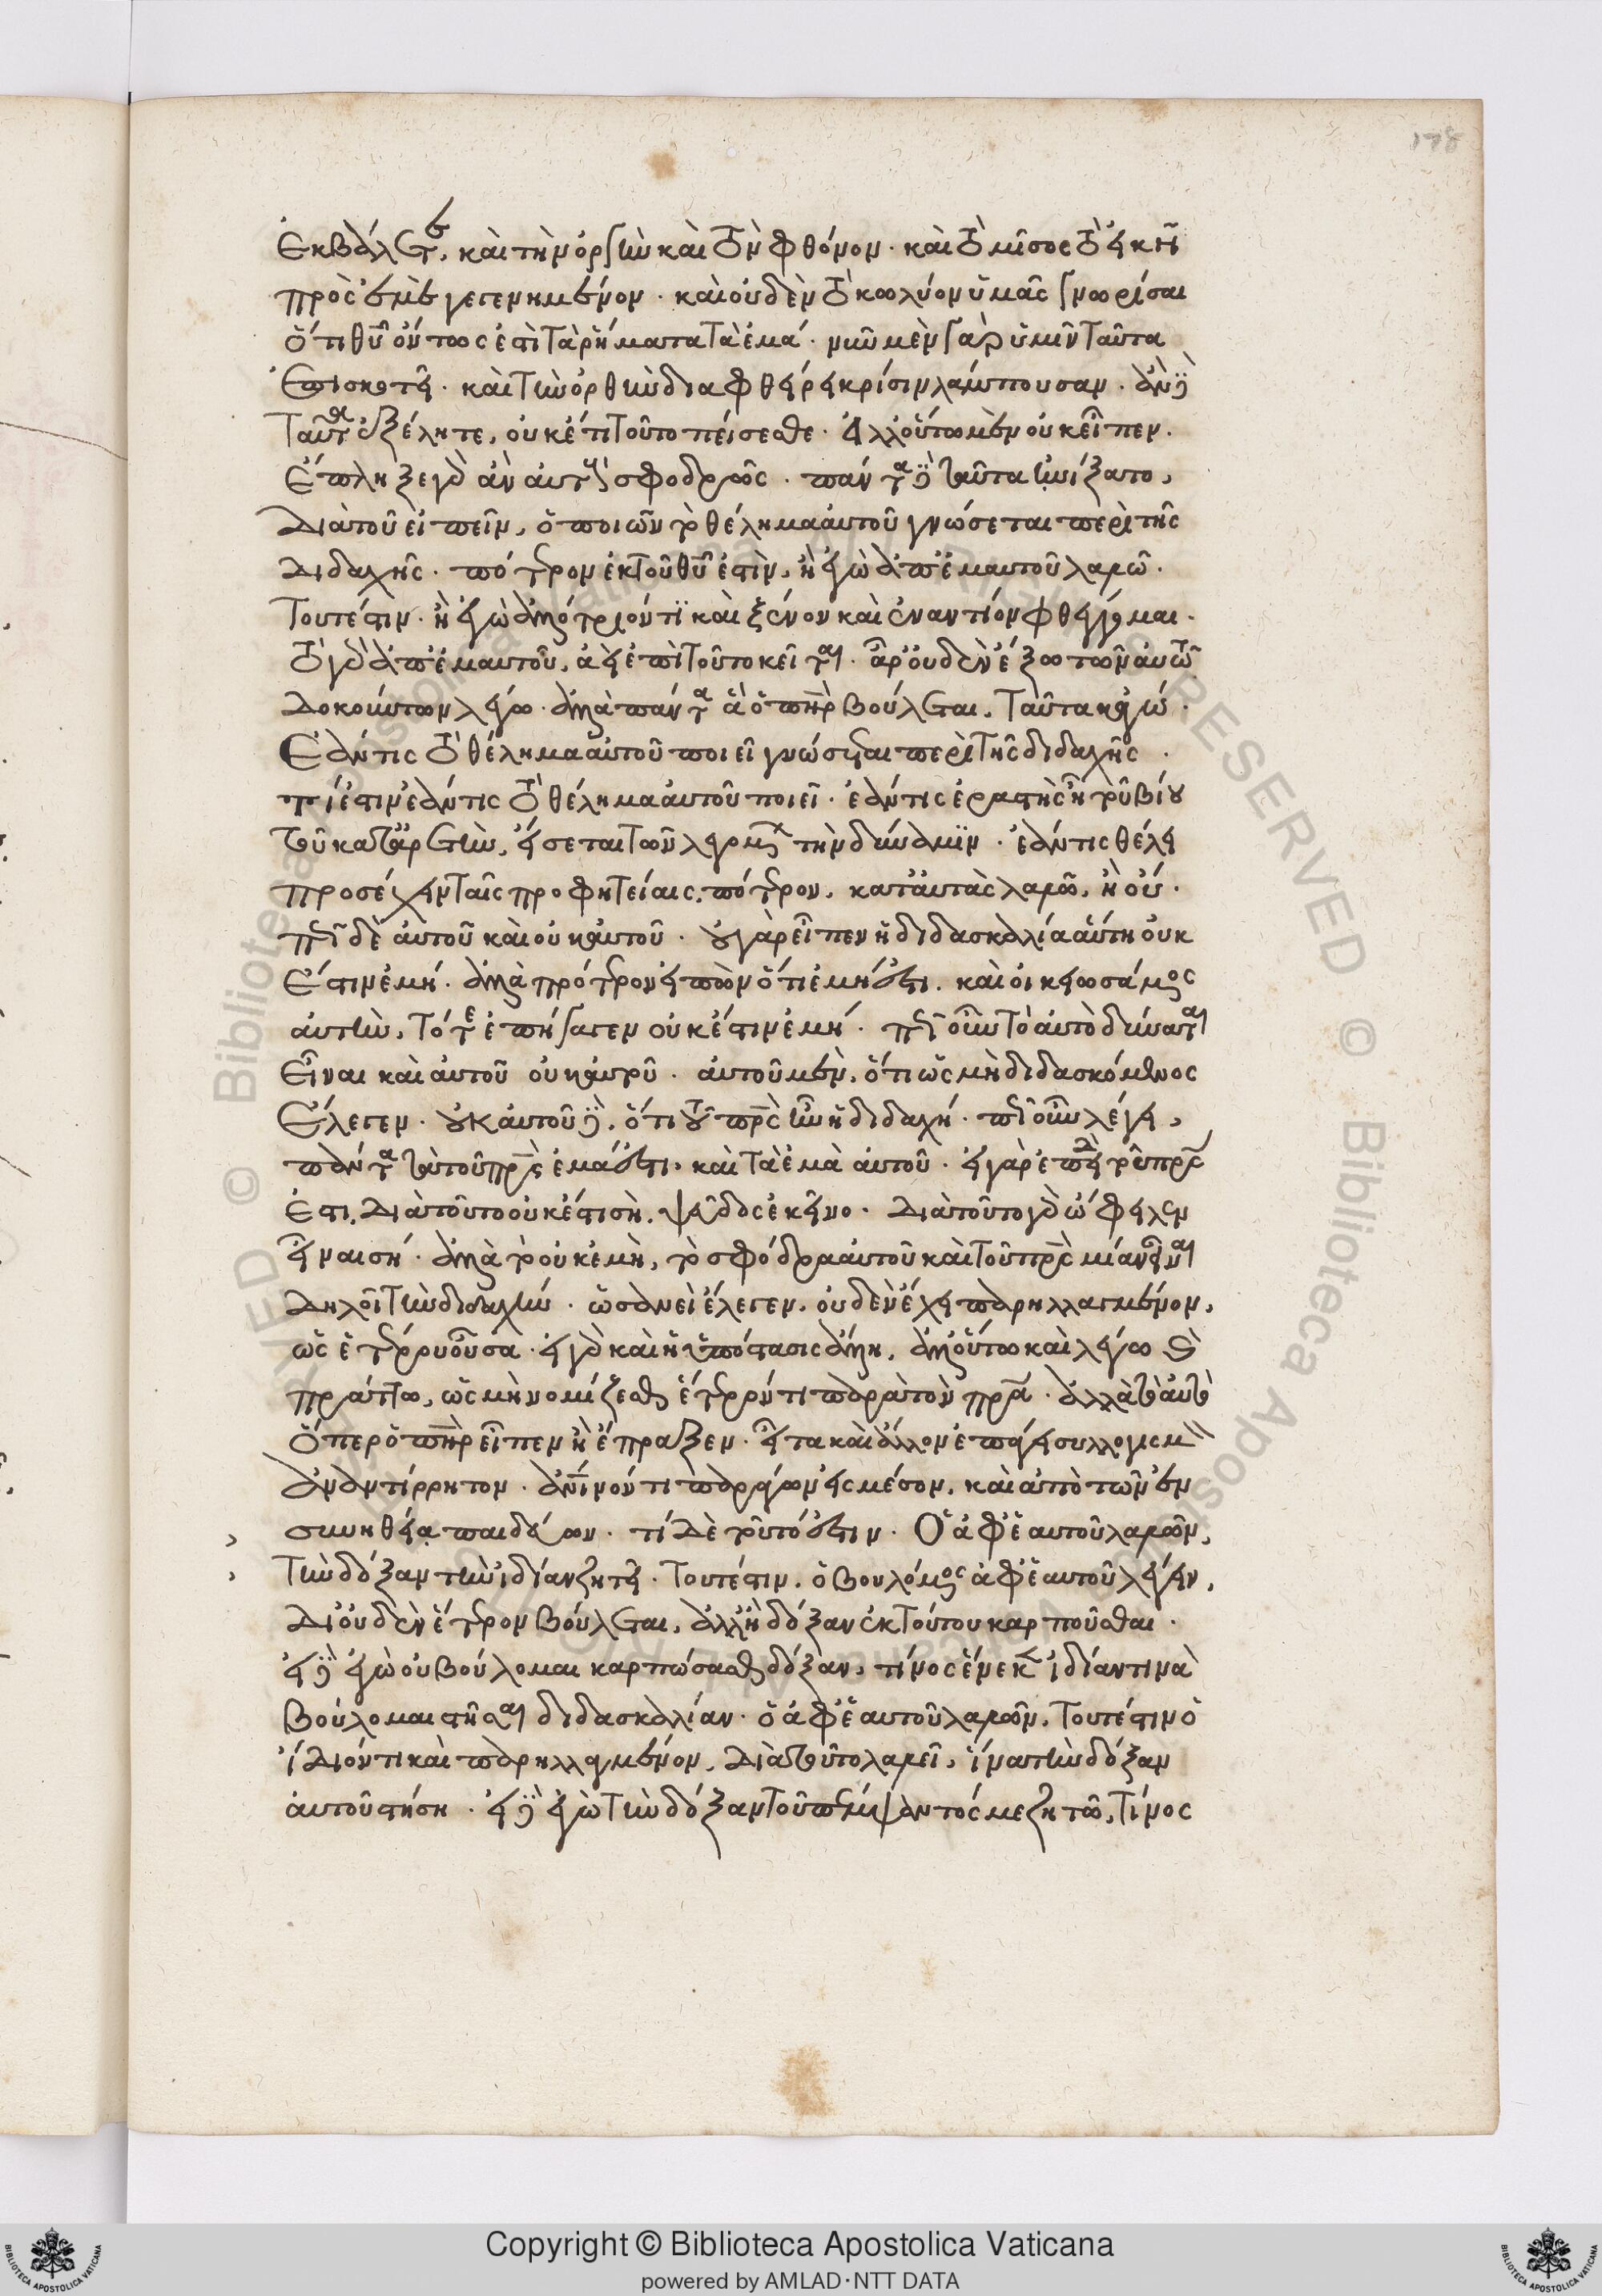 178
ἐκβάλετε, καὶ τὴν ὀργὴν καὶ τὸν φθόνον· καὶ τὸ μῖσος τὸ εἰκῆ
πρὸς ἐμὲ γεγενημένον· καὶ οὐδὲν τὸ κωλύον ὑμᾶς γνωρίσαι
ὅτι θυ ὄντως ἐστὶ τὰ ῥήματα τὰ ἐμά· νῦν μὲν γὰρ ὑμῖν ταῦτα
ἐπισκοτεῖ· καὶ τὴν ὀρθὴν διαφθείρει κρίσιν λάμπουσαν· ἂν δὲ
ταῦτα ἐξέλητε, οὐκέτι τοῦτο πείσεσθε· ἀλλ' οὕτω μὲν οὐκ εἶπεν·
ἔπληξε γὰρ ἂν αὐτοὺς σφοδρῶς· πάντα δὲ ταῦτα ἠνίξατο,
διὰ τοῦ εἰπεῖν, ὁ ποιῶν τὸ θέλημα αὐτοῦ γνώσεται περὶ τῆς
διδαχῆς· πότερον ἐκ τοῦ θυ ἐστὶν, ἢ ἐγὼ ἀπ' ἐμαυτοῦ λαλῶ·
τουτέστιν· ἢ ἐγὼ ἀλλότριόν τι καὶ ξένον καὶ ἐναντίον φθέγγομαι·
τὸ γὰρ ἀπ' ἐμαυτοῦ, ἀεὶ ἐπὶ τοῦτο κεῖται· ἆρ' οὐδὲν ἔξω τῶν αὐτῷ
δοκούντων λέγω· ἀλλὰ πάντα ἃ ὁ πηρ βούλεται, ταῦτα κἀγώ·
Ἐάν τις τὸ θέλημα αὐτοῦ ποιεῖ γνώσεται περὶ τῆς διδαχῆς·
τί ἐστιν ἐάν τις τὸ θέλημα αὐτοῦ ποιεῖ· ἐάν τις ἐραστὴς ἦ τοῦ βίου
τοῦ κατ' ἀρετὴν, εἴσεται τῶν λεγομένων τὴν δύναμιν· ἐάν τις θέλει
προσέχειν ταῖς προφητείαις, πότερον, κατ' αὐτὰς λαλῶ, ἢ οὔ·
πῶς δὲ αὐτοῦ καὶ οὐκ αὐτοῦ· οὐ γὰρ εἶπεν ἡ διδασκαλία αὕτη οὐκ
ἔστιν ἐμή· ἀλλὰ πρότερον εἰπὼν ὅτι ἐμή ἐστι, καὶ οἰκειωσάμενος
αὐτὴν, τότε ἐπήγαγεν οὐκ ἔστιν ἐμή· πῶς οὖν τὸ αὐτὸ δύναται
εἶναι καὶ αὐτοῦ οὐκ αὐτοῦ· αὐτοῦ μὲν, ὅτι ὡς μὴ διδασκόμενος
ἔλεγεν· οὐκ αὐτοῦ δὲ, ὅτι τοῦ πρς ἦν ἡ διδαχή· πῶς οὖν λέγει,
πάντα τὰ τοῦ πρς ἐμά ἐστι, καὶ τὰ ἐμὰ αὐτοῦ· εἰ γὰρ ἐπειδὴ τοῦ πρς
ἐστι, διὰ τοῦτο οὐκ ἔστι σὴ, ψεῦδος ἐκεῖνο· διὰ τοῦτο γὰρ ὤφειλεν
εἶναι σή· ἀλλὰ τὸ οὐκ ἐμὴ, τὸ σφόδρα αὐτοῦ καὶ τοῦ πρς μίαν εἶναι
δηλοῖ τὴν διδαχήν· ὡσανεὶ ἔλεγεν, οὐδὲν ἔχει παρηλλαγμένον,
ὡς ἑτέρου οὖσα· εἰ γὰρ καὶ ἡ ὑπόστασις ἄλλη, ἀλλ' οὕτω καὶ λέγω καὶ
πράττω, ὡς μὴ νομίζεσθαι ἕτερόν τι παρὰ τὸν πρα· ἀλλὰ τὸ αὐτὸ
ὅπερ ὁ πηρ εἶπεν ἢ ἔπραξεν· εἶτα καὶ ἄλλον ἐπάγει συλλογισμὸν
ἀναντίρρητον· ἀνινόν τι παράγων εἰς μέσον, καὶ ἀπὸ τῶν ἐν
συνηθείᾳ παιδεύων· τί δὲ τοῦτό ἐστιν· Ὁ ἀφ' ἑαυτοῦ λαλῶν,
τὴν δόξαν τὴν ἰδίαν ζητεῖ· τουτέστιν, ὁ βουλόμενος ἀφ' ἑαυτοῦ λέγειν,
δι' οὐδὲν ἕτερον βούλεται, ἀλλ' ἢ δόξαν ἐκ τούτου καρποῦσθαι·
εἰ δὲ ἐγὼ οὐ βούλομαι καρπώσασθαι δόξαν, τίνος ἕνεκεν ἰδίαν τινὰ
βούλομαι στῆσαι διδασκαλίαν· ὁ ἀφ' ἑαυτοῦ λαλῶν, τουτέστιν ὁ
ἴδιόν τι καὶ παρηλλαγμένον, διὰ τοῦτο λαλεῖ, ἵνα τὴν δόξαν
αὐτοῦ στήσῃ· εἰ δὲ ἐγὼ τὴν δόξαν τοῦ πέμψαντός με ζητῶ, τίνος
Copyright © Biblioteca Apostolica Vaticana
powered by AMLAD·NTT DATA